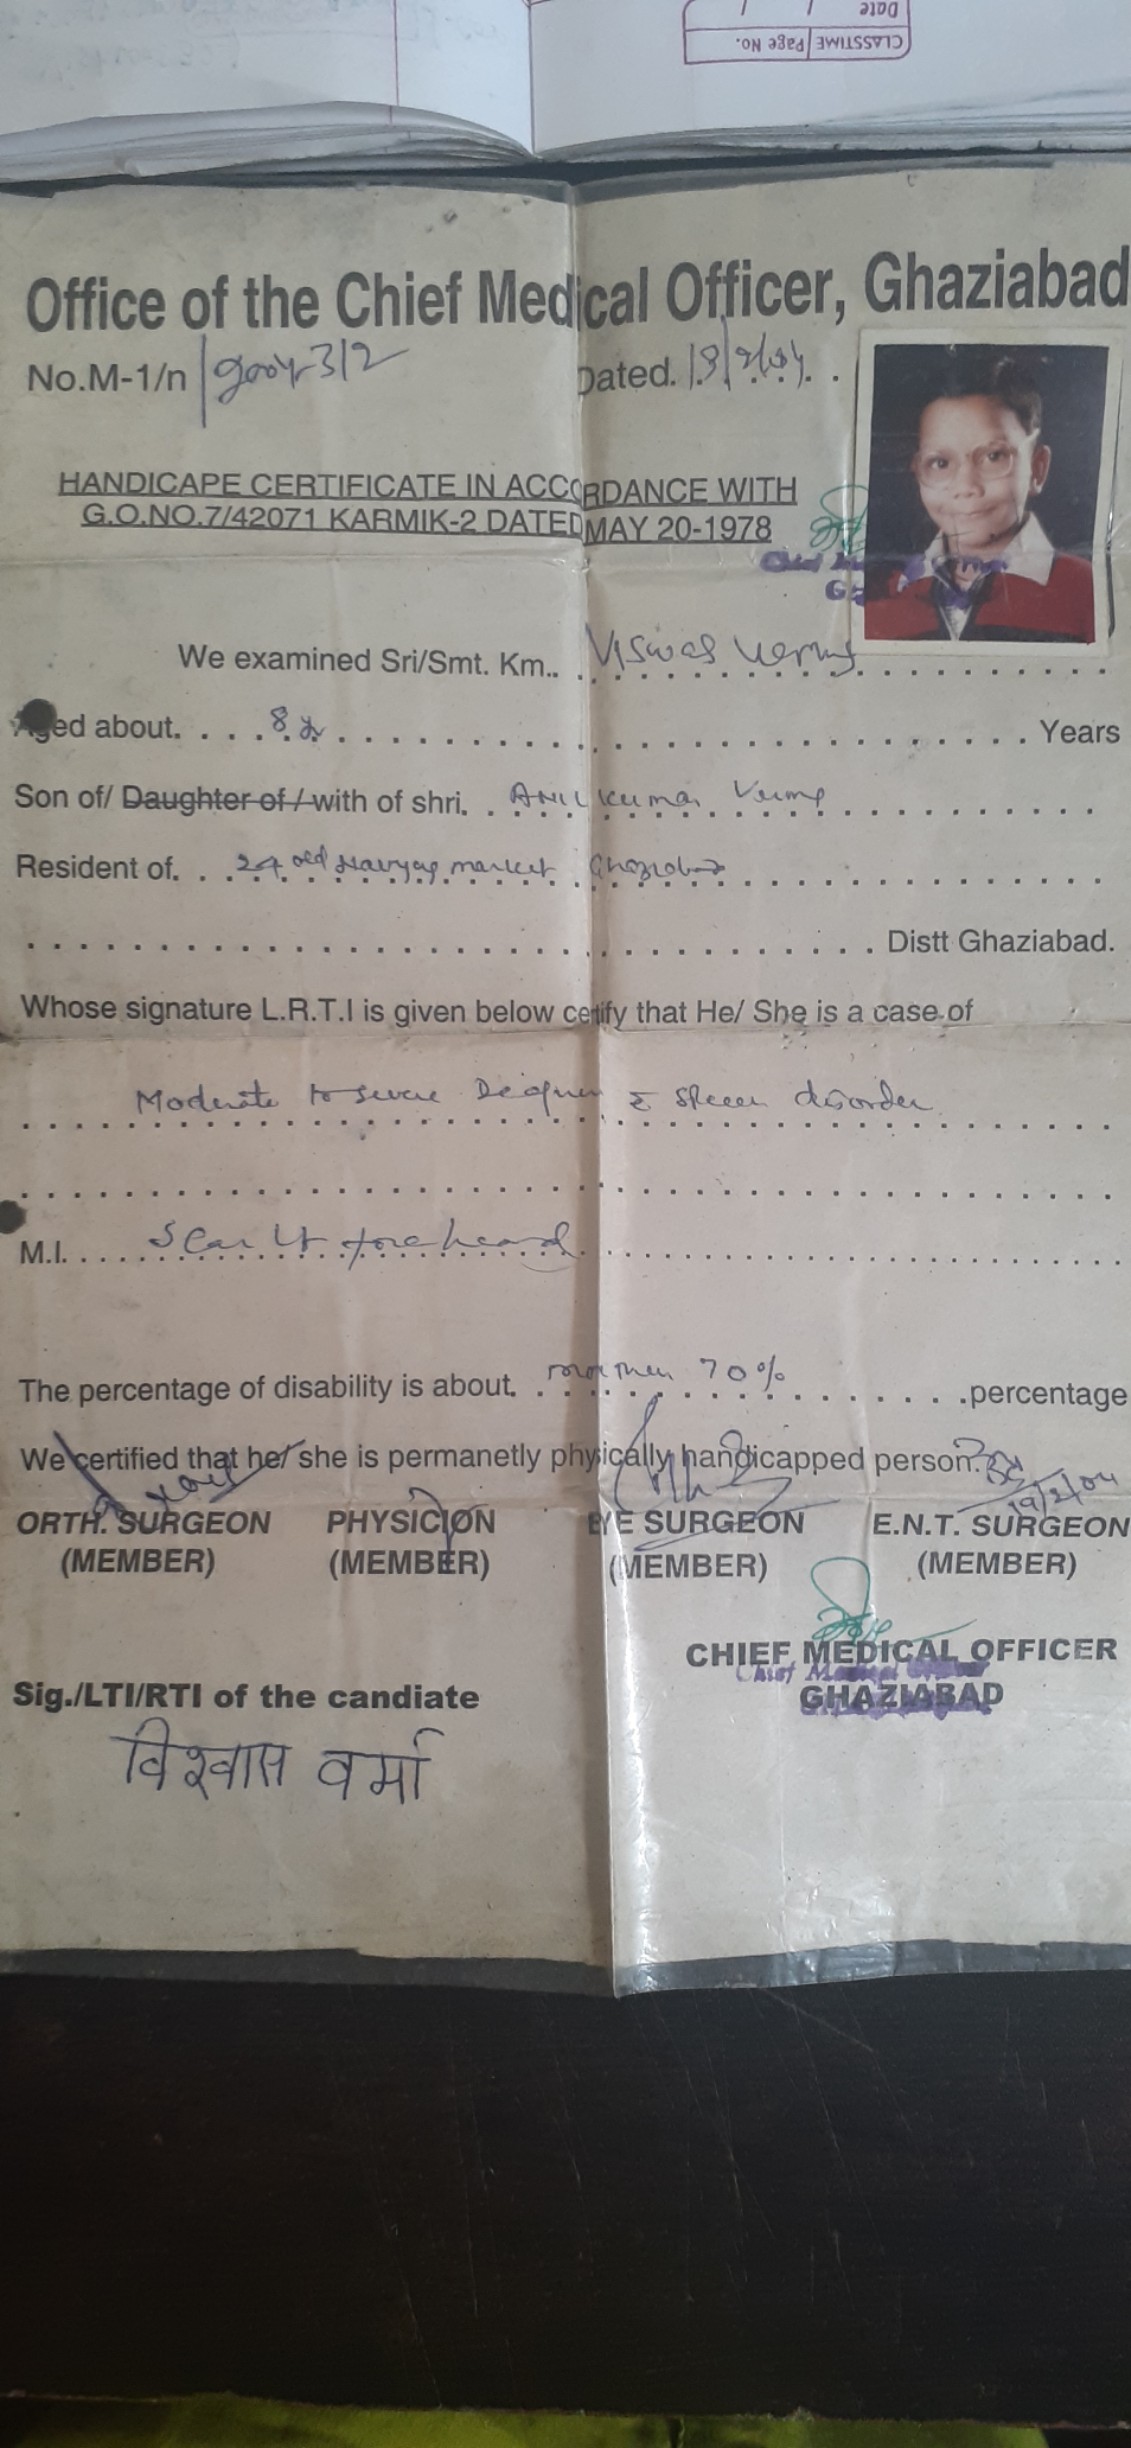 Date / /
CLASSTIME Page No.
Office of the Chief Medical Officer, Ghaziabad
No.M-1/n
Dated.
HANDICAPE CERTIFICATE IN ACCORDANCE WITH
G.O.NO.7/42071 KARMIK-2 DATED MAY 20-1978
Chief
We examined Sri/Smt. Km.. Viswas Verma
Aged about. 8 Years
Son of/ Daughter of / with of shri. Anil Kumar Verma
Resident of. 24 old Navyug market Ghaziabad
Distt Ghaziabad.
Whose signature L.R.T.I is given below certify that He/ She is a case of
Moderate to severe disorder
M.I. Scar Lt forehead
The percentage of disability is about. more than 70% percentage
We certified that he/ she is permanetly physically handicapped person.
19/2/04
ORTH. SURGEON PHYSICION EYE SURGEON E.N.T. SURGEON
(MEMBER) (MEMBER) (MEMBER) (MEMBER)
CHIEF MEDICAL OFFICER
Chief Medical Officer
GHAZIABAD
Sig./LTI/RTI of the candiate
विश्वास वर्मा